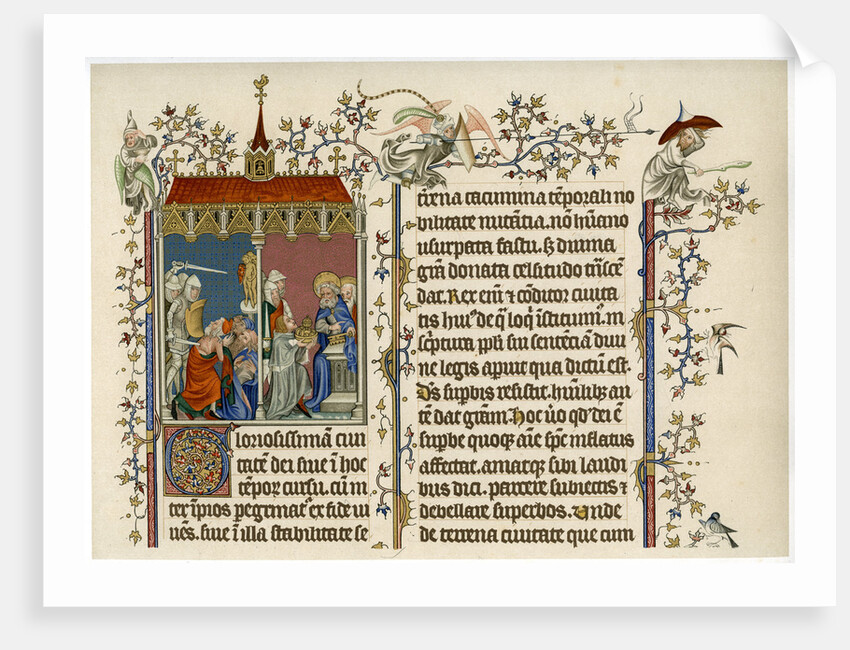 Gloriosissimã ciui
tatẽ dei siue ĩ hoc
tẽpoꝝ cursu. cũ ĩ
ter ĩpios peregrinat᷑ ex fide ui
uẽs. siue ĩ illa stabilitate se
t̃rena cacumina tẽporali no
bilitate nutantia. nõ hũano
usurpata fastu. sꝫ diuina
gr̃a donata celsitudo t̃nscẽ
dat. Rex eni̅ ⁊ cõditor ciuita
tis hui᷒ de q̃ loq̃ ĩstituim᷒. ĩ
sc̃ptura ppl̃i sui sentẽciã diui
ne legis apuit qua dictũ est.
Dñs supbis resistit. hũilibꝫ au
tẽ dat gr̃am. Hoc ũo qd̕ dei ẽ
supbe quoqꝫ aĩe sp̃c inflatus
affectat. amatqꝫ sibi laudi
bus dici. parcere subiectis ⁊
debellare superbos. Vnde
de terrena ciuitate que cum